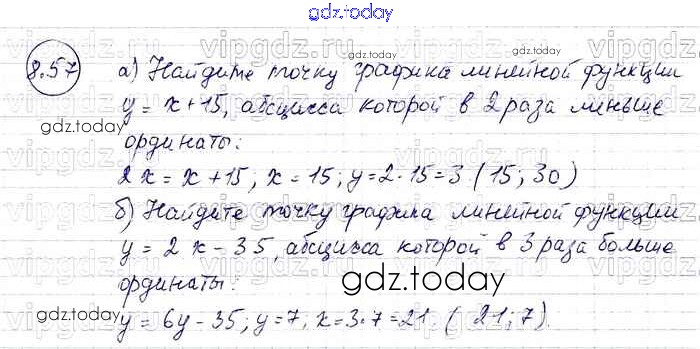 gdz.today
8.57
а) Найдите точку графика линейной функции
y = x + 15, абсцисса которой в 2 раза меньше
gdz.today
ординаты:
2x = x + 15; x = 15; y = 2·15 = 3 (15; 30)
б) Найдите точку графика линейной функции
y = 2x - 35, абсцисса которой в 3 раза больше
ординаты:
gdz.today
y = 6y - 35; y = 7, x = 3·7 = 21. (21; 7).